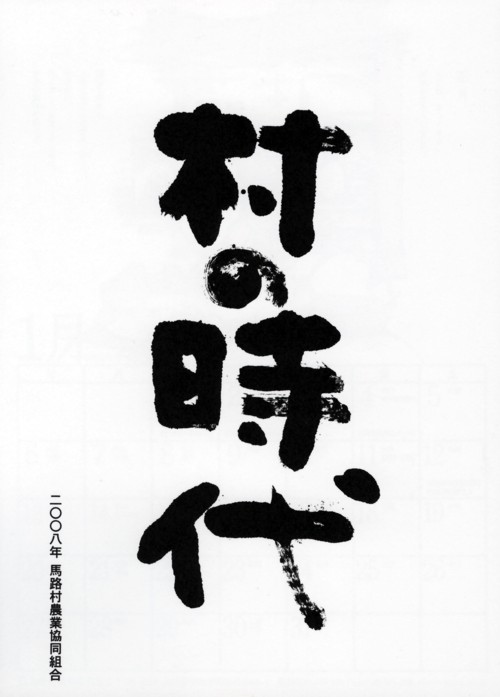 村の時代
二〇〇八年 馬路村農業協同組合